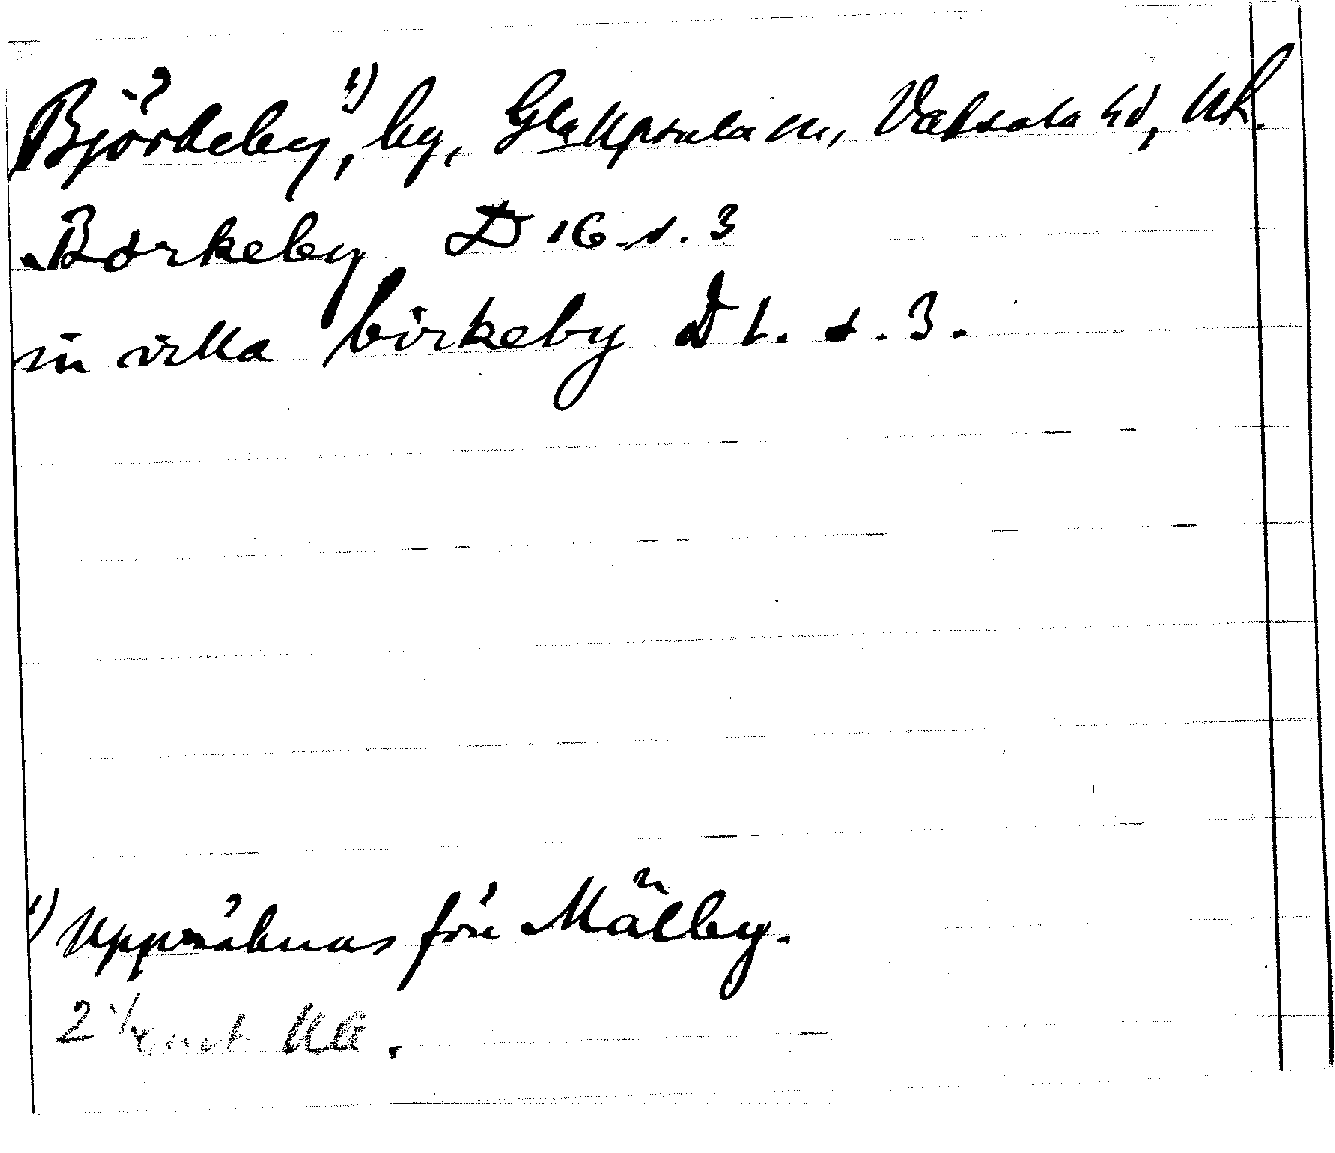 Björkeby,¹⁾ by, Gla Uppsala sn, Vaksala hd, Ul.
Borkeby D 16 s. 3
in villa birkeby D 1. s. 3.
¹⁾ Uppräknas före Mälby.
2